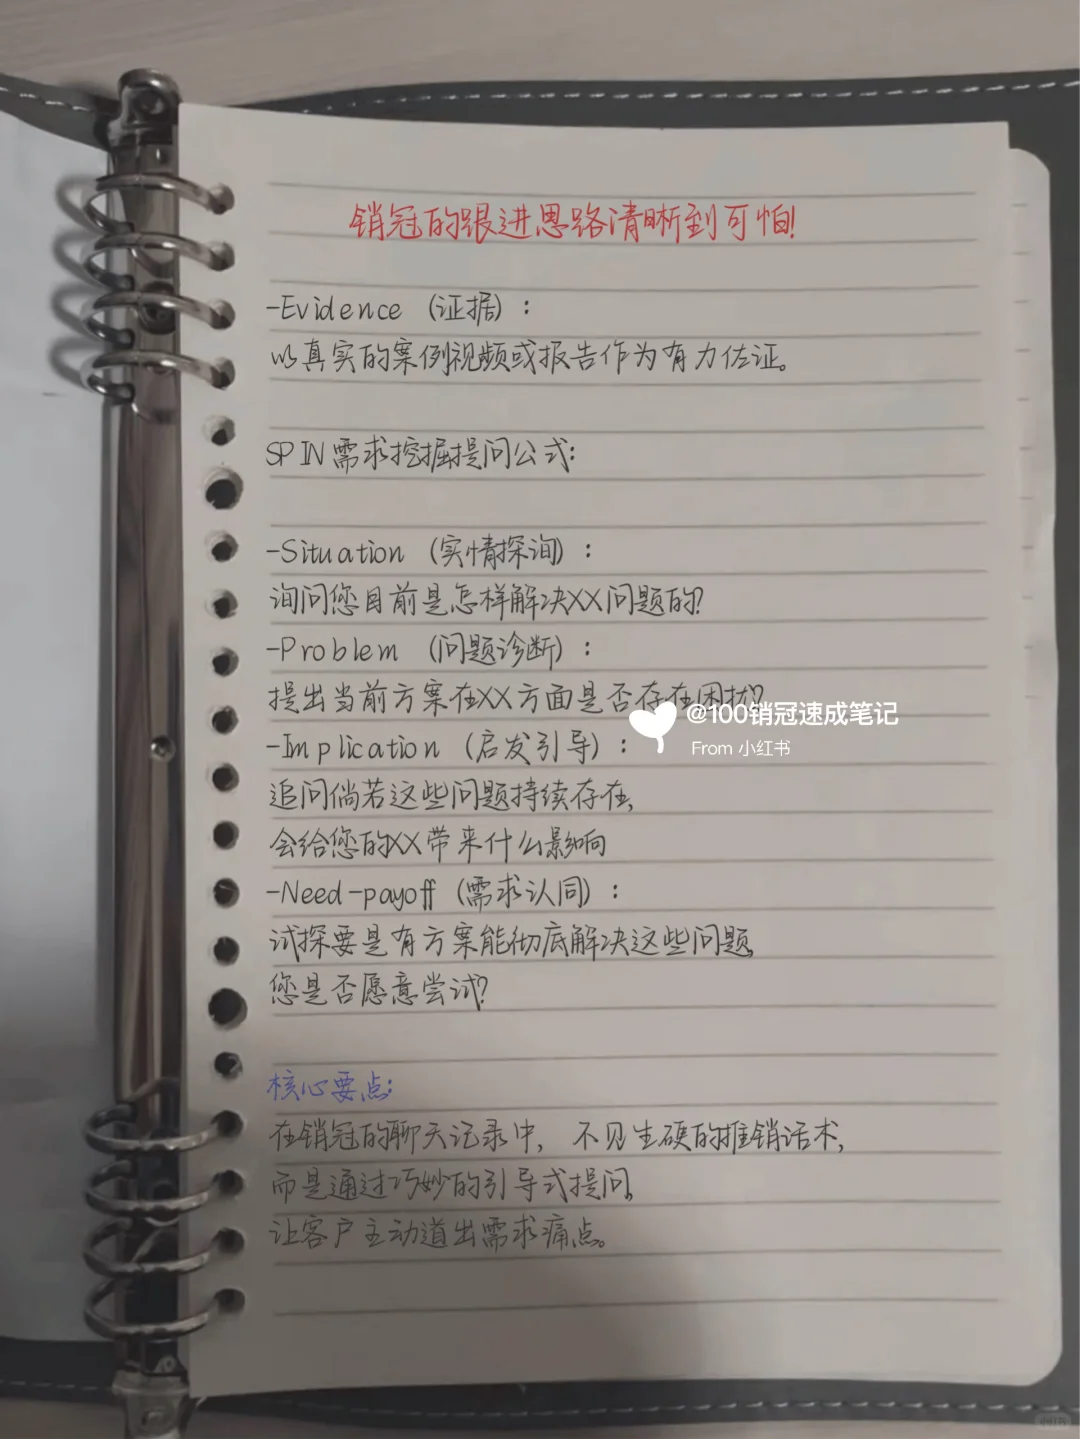 销冠的跟进思路清晰到可怕!
-Evidence (证据) :
以真实的案例视频或报告作为有力佐证。
SPIN需求挖掘提问公式:
-Situation (实情探询) :
询问您目前是怎样解决XX问题的?
-Problem (问题诊断) :
提出当前方案在XX方面是否存在困扰?
@100销冠速成笔记
From 小红书
-Implication (启发引导) :
追问倘若这些问题持续存在,
会给您的XX带来什么影响
-Need-payoff (需求认同) :
试探要是有方案能彻底解决这些问题,
您是否愿意尝试?
核心要点:
在销冠的聊天记录中, 不见生硬的推销话术,
而是通过巧妙的引导式提问,
让客户主动道出需求痛点。